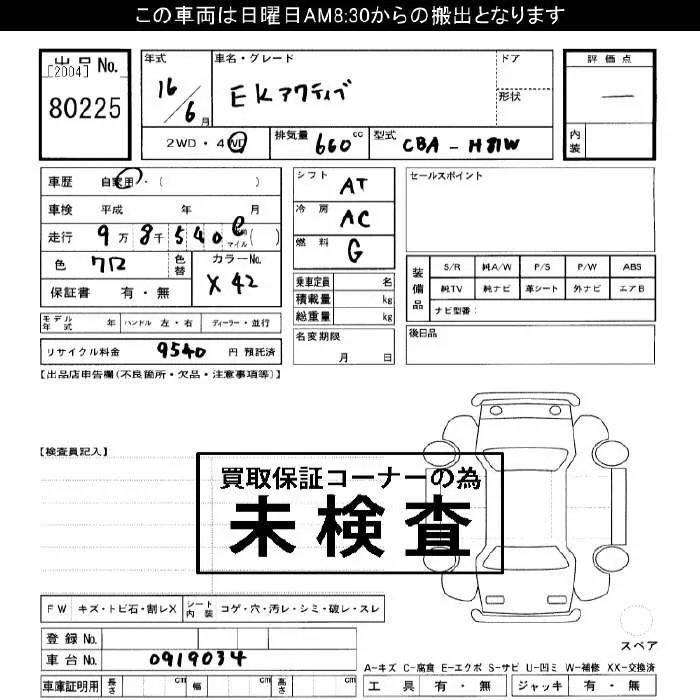 この車両は日曜日AM8:30からの搬出となります
出品 No.
[2004]
80225
年式
16/6月
車名・グレード
EKアクティブ
ドア
形状
2WD・4WD
排気量 660 cc
型式 CBA - H81W
評価点
—
内装
車歴 自家用・( )
車検 平成 年 月
走行 9万8千540 マイル( )
色 クロ
色替
カラーNo. X42
保証書 有・無
シフト AT
冷房 AC
燃料 G
乗車定員 名
積載量 kg
総重量 kg
セールスポイント
装備品
S/R 純A/W P/S P/W ABS
純TV 純ナビ 革シート 外ナビ エアB
ナビ型番:
モデル年式 年 ハンドル 左・右 ディーラー・並行
リサイクル料金 9540 円 預託済
名変期限
月 日
後日品
【出品店申告欄(不良箇所・欠品・注意事項等)】
【検査員記入】
買取保証コーナーの為
未検査
FW キズ・トビ石・割レX
シート内装 コゲ・穴・汚レ・シミ・破レ・スレ
登録 No.
車台 No. 0919034
車庫証明用 長さ cm 幅 cm 高さ cm
スペア
A-キズ C-腐食 E-エクボ S-サビ U-凹ミ W-補修 XX-交換済
工具 有・無 ジャッキ 有・無